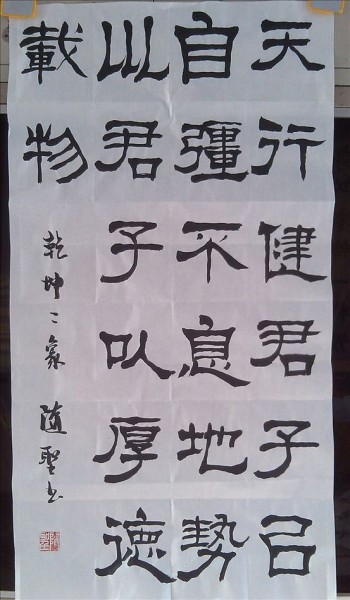 天行健君子㠯
自彊不息地勢
巛君子㕥厚德
載物
乾坤二象 隨聖书